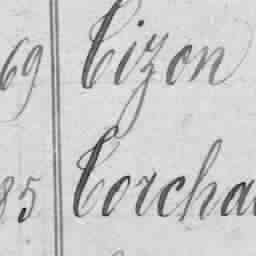 69 Tizon
85 Torcha